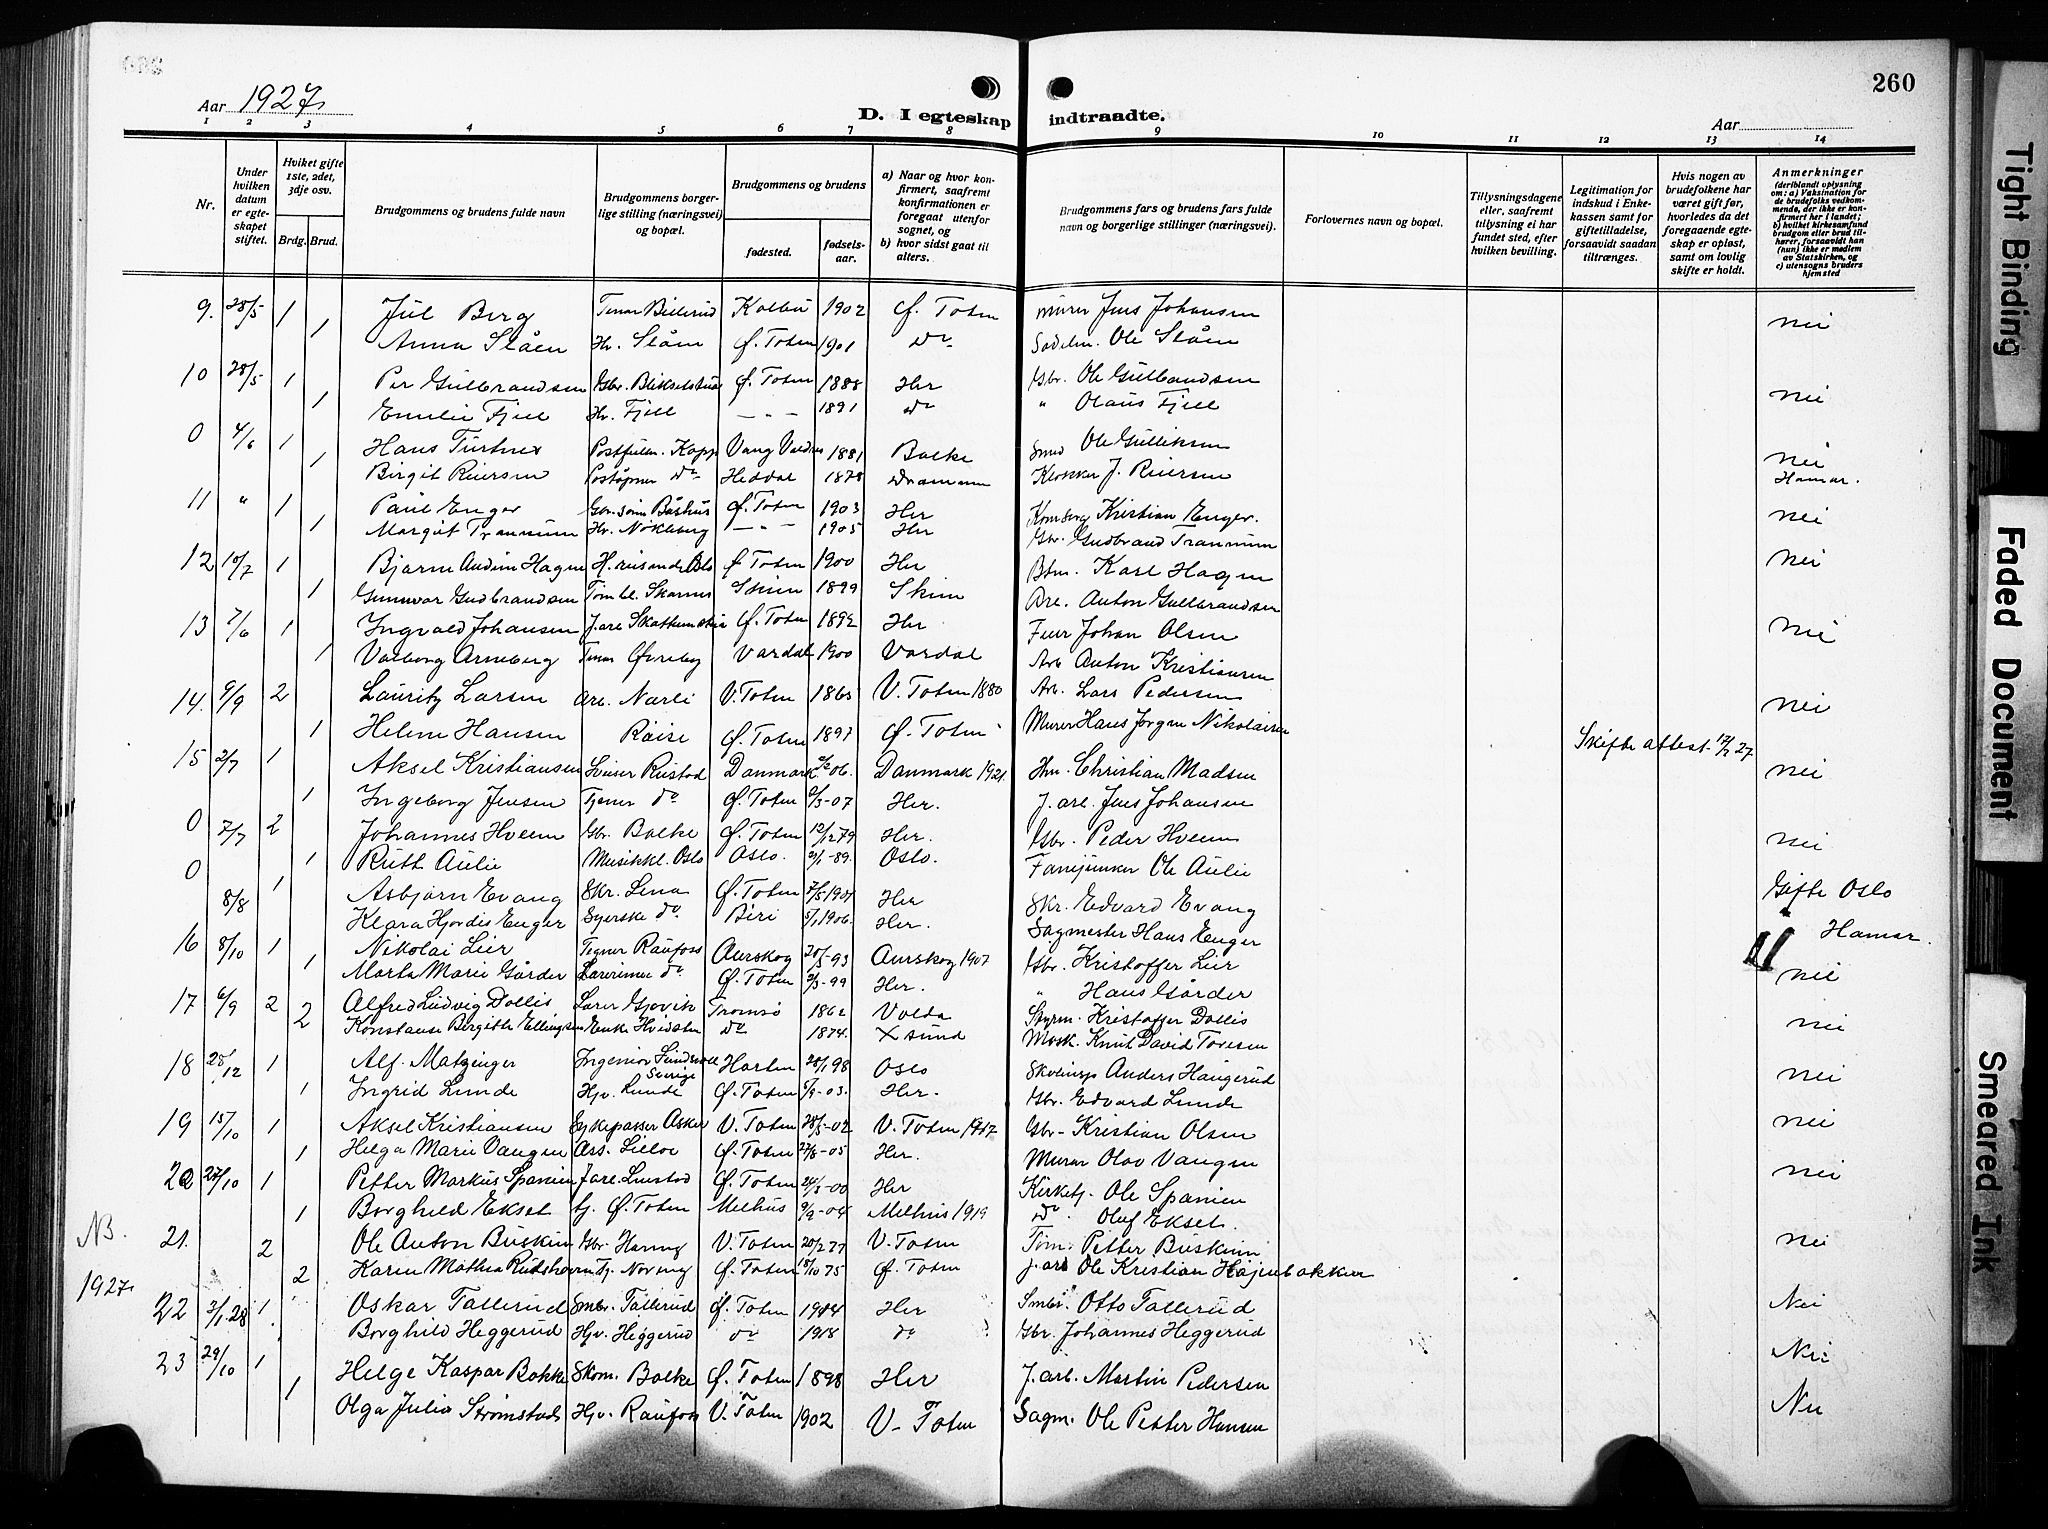 260
Aar 1927
D. I egteskap indtraadte.
Aar
1 2 3 4 5 6 7 8 9 10 11 12 13 14
Nr.
Under hvilken datum er egteskapet stiftet.
Hviket gifte 1ste, 2det, 3dje osv.
Brdg. Brud.
Brudgommens og brudens fulde navn
Brudgommens borgerlige stilling (næringsvei) og bopæl.
Brudgommens og brudens
fødested.
fødselsaar.
a) Naar og hvor konfirmert, saafremt konfirmationen er foregaat utenfor sognet, og
b) hvor sidst gaat til alters.
Brudgommens fars og brudens fars fulde navn og borgerlige stillinger (næringsvei).
Forlovernes navn og bopæl.
Tillysningsdagene eller, saafremt tillysning ei har fundet sted, efter hvilken bevilling.
Legitimation for indskud i Enkekassen samt for giftetilladelse, forsaavidt saadan tiltrænges.
Hvis nogen av brudefolkene har været gift før, hvorledes da det foregaaende egteskap er opløst, samt om lovlig skifte er holdt.
Anmerkninger (deriblandt oplysning om: a) Vaksination for de brudefolks vedkommende, der ikke er konfirmert her i landet; b) hvilket kirkesamfund brudgom eller brud tilhører, forsaavidt han (hun) ikke er medlem av Statskirken, og c) utensogns bruders hjemsted
9. 28/5 1 Jul Berg Kolbu 1902 Ø. Toten murer Jens Johansen nei
1 Anna Slåen Hv. Slåen Ø. Toten 1901 do Ole Slåen
10 28/5 1 Per Gulbrandsen Gbr. Ø. Toten 1888 Her Gbr. Ole Gulbrandsen nei
1 Emelie Fjell Hv. Fjell – " – 1891 do " Olaus Fjell
0 4/6 1 Hans Vang Valdres 1881 Balke Smed Ole Gulliksen nei
1 Birgit Reiersen Poståpner do Heddal 1878 Drammen Klokker J. Reiersen Hamar.
11 " 1 Paul Enger Ø. Toten 1903 Her Kristian Enger. nei
1 Margit Trannum Hv. Nøkleberg – " – 1905 Her Gbr. Gudbrand Trannum
12 10/7 1 Bjarne Hagen Ø. Toten 1900 Her Karl Hagen nei
1 Gunnvor Gudbrandsen Skien 1899 Skien Anton Gulbrandsen
13 7/6 1 Ingvald Johansen Ø. Toten 1892 Her Johan Olsen nei
1 Valborg Arneberg Øvreby Vardal 1900 Vardal Arb Anton Kristiansen
14. 9/9 2 Lauritz Larsen Narli V. Toten 1865 V. Toten 1880 Arb. Lars Pedersen nei
1 Helene Hansen Røise Ø. Toten 1897 Ø. Toten Murer Hans Jørgen Nikolaisen Skifte attest 27
15 2/7 1 Aksel Kristiansen Rustad Danmark 06. Danmark 1921. Christian Madsen nei
1 Ingeborg Jensen Tjener do Ø. Toten 07 Her. J. arb. Jens Johansen
0 7/7 2 Johannes Hveem Gbr. Balke Ø. Toten 12/12 79 Her. Gbr. Peder Hveem nei
0 1 Ruth Aulie Musikkl. Oslo Oslo. 89. Oslo. Fanejunker Ole Aulie
8/8 1 Asbjørn Evang Skr. Lena Ø. Toten Her Skr. Edvard Evang Gifte Oslo
Klara Hjørdis Enger Syerske do Biri 1906. Her. Sagmester Hans Enger Hamar.
16 8/10 1 Nikolai Lier Tegner Raufoss Aurskog 20/5-93 Aurskog 1907 Gbr. Kristoffer Lier nei
1 Marta Marie Gårder Lærerinne do Ø. Toten 99 Her. " Hans Gårder
17 6/9 2 Alfred Ludvig Dollis Lærer Gjøvik Tromsø 1862 Volda Styrm. Kristoffer Dollis nei
2 Konstanse Birgithe Ellingsen Enke Hvidsten do 1874. X sund Mask. Knut David Toresen
18 28/12 1 Alf. Matzinger Ingeniør Sverige Horten 98 Oslo Anders Haugerud nei
1 Ingrid Lunde Hjv. Lunde Ø. Toten 03. Her. Gbr. Edvard Lunde
19 15/10 1 Aksel Kristiansen Sykepasser Asker V. Toten 28/5-02 V. Toten 1917 Gbr – Kristian Olsen nei
1 Helga Marie Vangen Ø. Toten 05 Her. Murer Olav Vangen
20 27/10 1 Petter Markus Spanien Ø. Toten 24/3-00 Her Kirketj. Ole Spanien nei
1 Borghild Ekset tj. Ø. Toten Melhus 9/9-04 Melhus 1919 do Oluf Ekset.
NB. 21. 2 Ole Anton Buskum Gbr. V. Toten 20/2 77 V. Toten Tøm. Petter Buskum nei
1927 2 Karen Mathea Tj. Ø. Toten 18/10 75 Ø. Toten J. arb Ole Kristian Højenbakken
22 3/1 28 1 Oskar Tallerud Smbr. Tallerud Ø. Toten Her Smbr. Otto Tallerud Nei
Borghild Heggerud Hjv. Heggerud do do Gbr. Johannes Heggerud
23 29/10 1 Helge Kaspar Bakke Skom. Balke Ø. Toten 1898 Her J. arb. Martin Pedersen Nei
1 Olga Julia Strømstad Hjv. Raufoss V. Toten 1902 V. Toten Sagm. Ole Petter Hansen Nei
Tight Binding
Faded Document
Smeared Ink